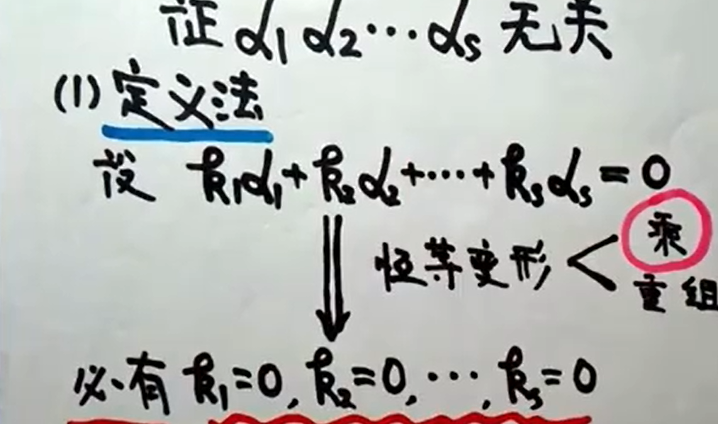 证 α₁ α₂ ⋯ αₛ 无关
(1) 定义法
设 k₁α₁ + k₂α₂ + ⋯ + kₛαₛ = 0
恒等变形 < 乘
重组
必有 k₁=0, k₂=0, ⋯, kₛ=0